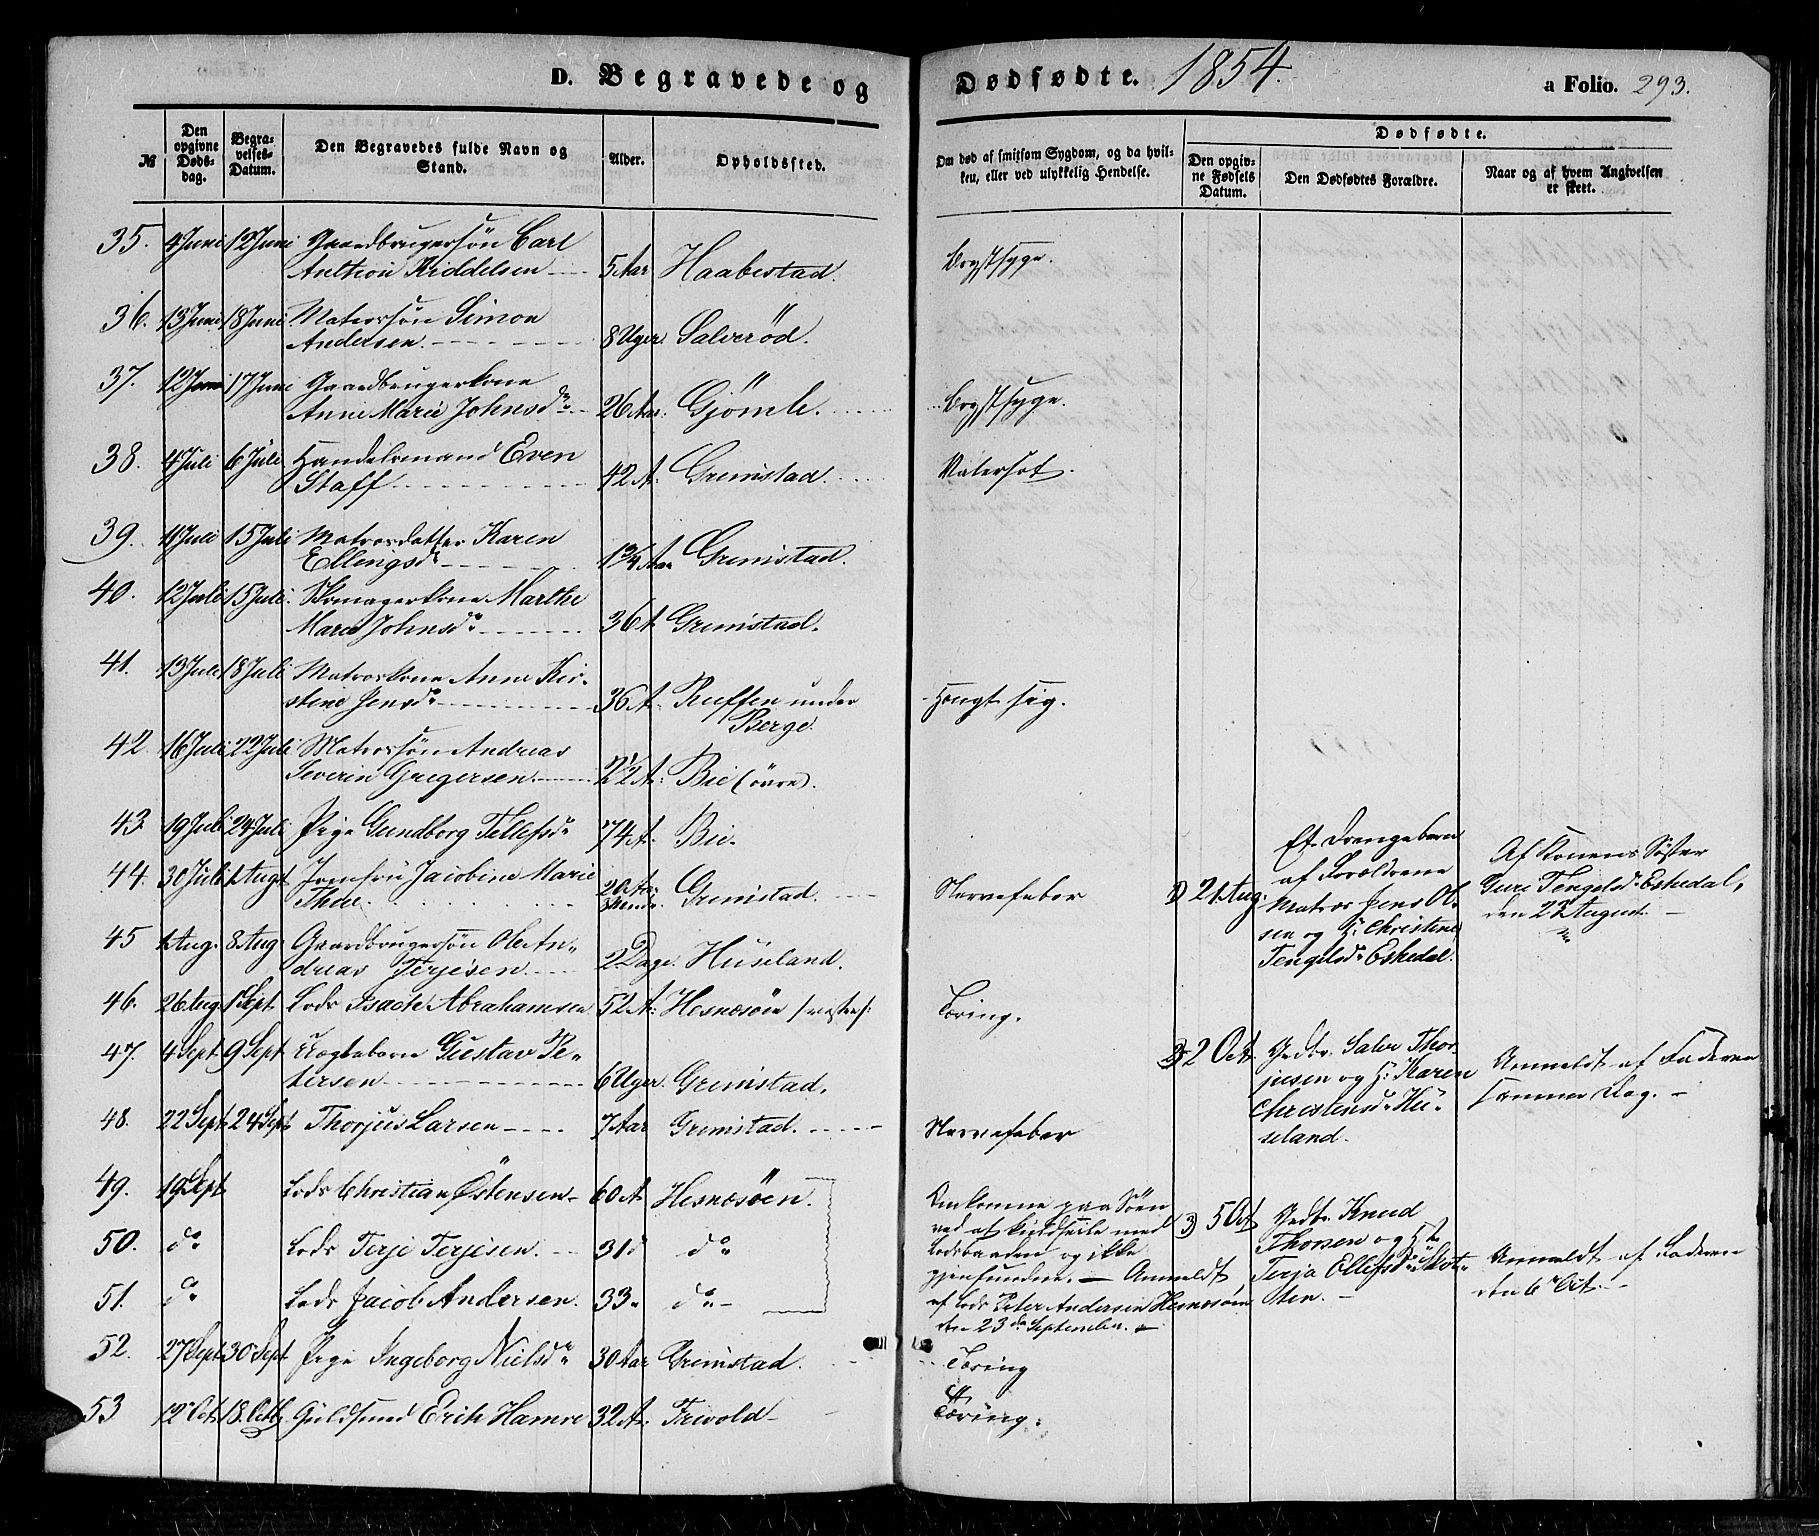 D. Begravede og Dødfødte. 1854. a Folio. 293.
№ Den opgivne Døds-dag. Begra-velses-Datum. Den Begravedes fulde Navn og Stand. Alder. Opholdssted. Om død af smitsom Sygdom, og da hvil-ken, eller ved ulykkelig Hendelse. Dødfødte. Den opgiv-ne Fødsels Datum. Den Dødfødtes Forældre. Naar og af hvem Angivelsen er skeet.
35. 4 Juni 12 Juni Gaardbrugersön Carl
Anthon Kiddelsen 5 Aar Haabestad. Brystsyge.
36. 13 Juni 18 Juni Matrossön Simon
Andersen. 8 Uger Salveröd.
37. 12 Juni 17 Juni Gaardbrugerkone
Anne Marie Johnsdr 26 Aar. Gjömle. Brystsyge.
38. 4 Juli 6 Juli Handelsmand Even
Staff 42 A. Gremstad. Vatersot.
39. 11 Juli 15 Juli Matrosdatter Karen
Ellingsdr 1¾ Aar Gremistad.
40. 12 Juli 15 Juli. Skomagerkone Marthe
Maria Johnsdr 36 A Gremstad.
41. 13 Juli 18 Juli Matroskone Anne Kir-
stine Jensd 36 A. Ruffen under
Berge. Hængt sig.
42 16 Juli 22 Juli Matrossön Andreas
Severin Gregersen. 2½ A: Bie (övre).
43 19 Juli 24 Juli Pige Gundborg Tellefsdr 74 A. Bie.
44. 30 Juli 1 Augt Jomfru Jacobine Marie
Thoe. 20 Aar Gremstad. Nervefeber
1) 21 Aug. Et Drengebarn
af Forældrene
Matros Jens Ol-
sen og H: Christine
Tengelsdr Eskedal. Af Konens Söster
Guri Tengelsdr Eskedal,
den 23 August.
45 1 Aug. 8 Aug Gaardbrugersön Ole An-
dreas Terjesen 2 Dage. Huseland.
46. 26 Aug. 1 Sept. Lods Isach Abrahamsen 52 A: Hesnæsöen /vestre/: Tæring.
47. 4 Sept 9 Sept Uægtebarn Gustav Pe-
tersen 6 Uger. Gremstad.
2) 2 Oct. Grdbr. Salve Thor-
jusen og H: Karen
Christensdr Hu-
seland. Anmeldt af Faderen
samme Dag.
48. 22 Sept. 24 Sept Thorjus Larsen 7 Aar Gremstad. Nervefeber
49. 19 Sept Lods Christian Östensen 60 A Hesnæsöen.
50. do Lods Terje Terjesen. 31 do
51. do Lods Jacob Andersen. 33 do
Omkomne paa Söen
ved at kuldseile med
Lodsbaaden og ikke
gjenfundne. Anmeldt
af Lods Peter Andersen Hesnæsöen
den 23de September.
3) 5 Oct Grdbr. Knud
Thorsen og H:
Terja Ollefsdr Skot-
ten. Anmeldt af Faderen
den 6 Oct.
52. 27 Sept. 30 Sept Pige Ingeborg Nielsdr 30 Aar Gremstad. Tæring
53 12 Oct. 18. Octb Guldsmed Erik Hamre 32 A: Frivold Tæring.